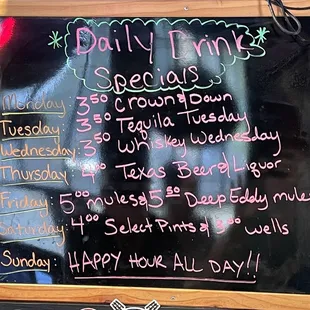 Daily Drink
Specials
Monday: 3⁵⁰ Crown & Down
Tuesday: 3⁵⁰ Tequila Tuesday
Wednesday: 3⁵⁰ Whiskey Wednesday
Thursday: 4⁰⁰ Texas Beer & Liquor
Friday: 5⁰⁰ mules & 5⁵⁰ Deep Eddy mule
Saturday: 4⁰⁰ Select Pints & 3⁵⁰ wells
Sunday: HAPPY HOUR ALL DAY!!